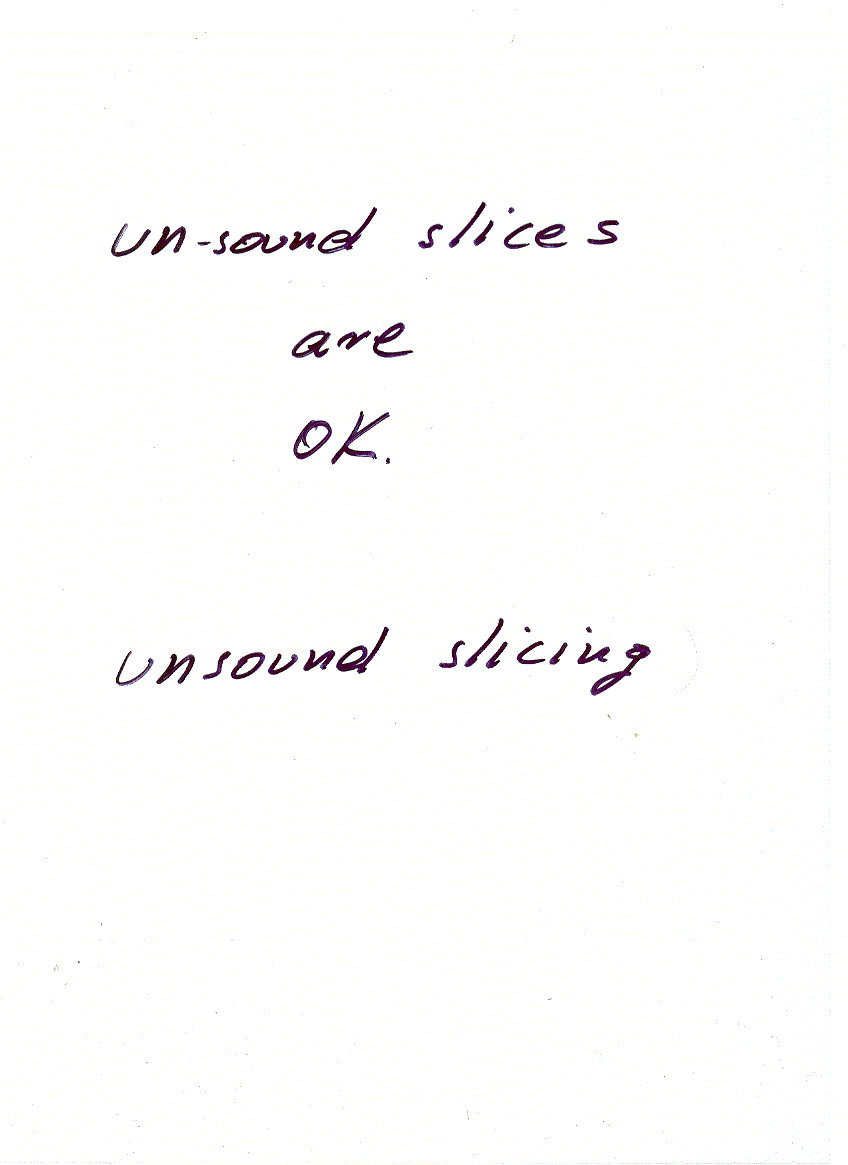 un-sound slices
are
OK.
unsound slicing